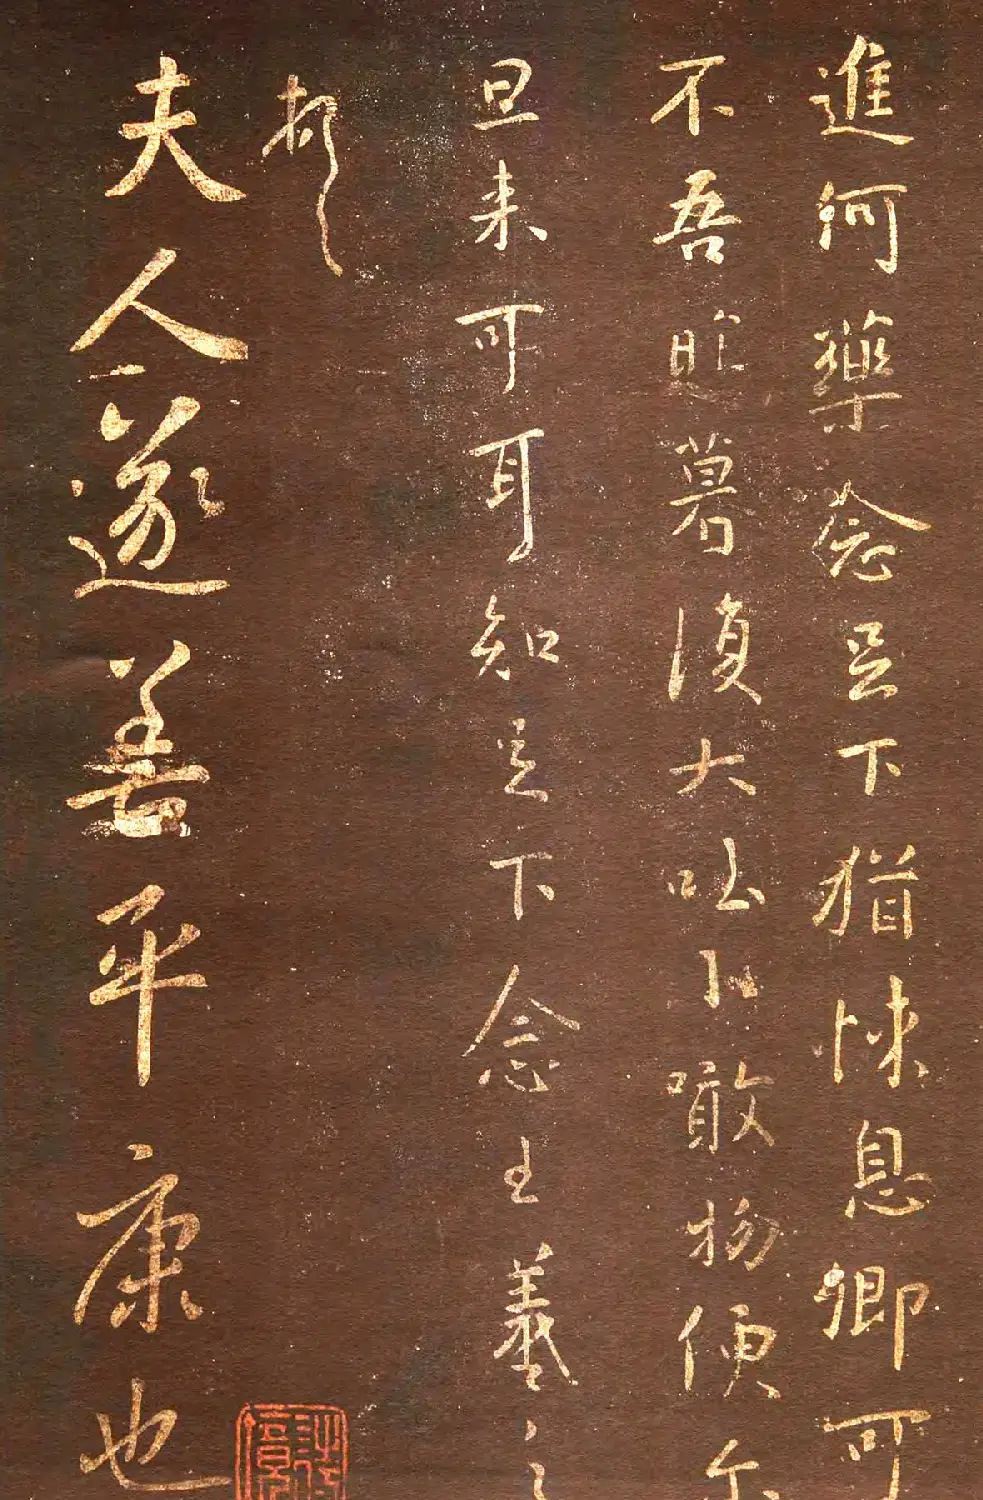 進何藥念足下猶悚息卿可
不吾昨暮復大吐小噉物便尔
旦来可耳知足下念王羲之
頓
夫人遂善平康也